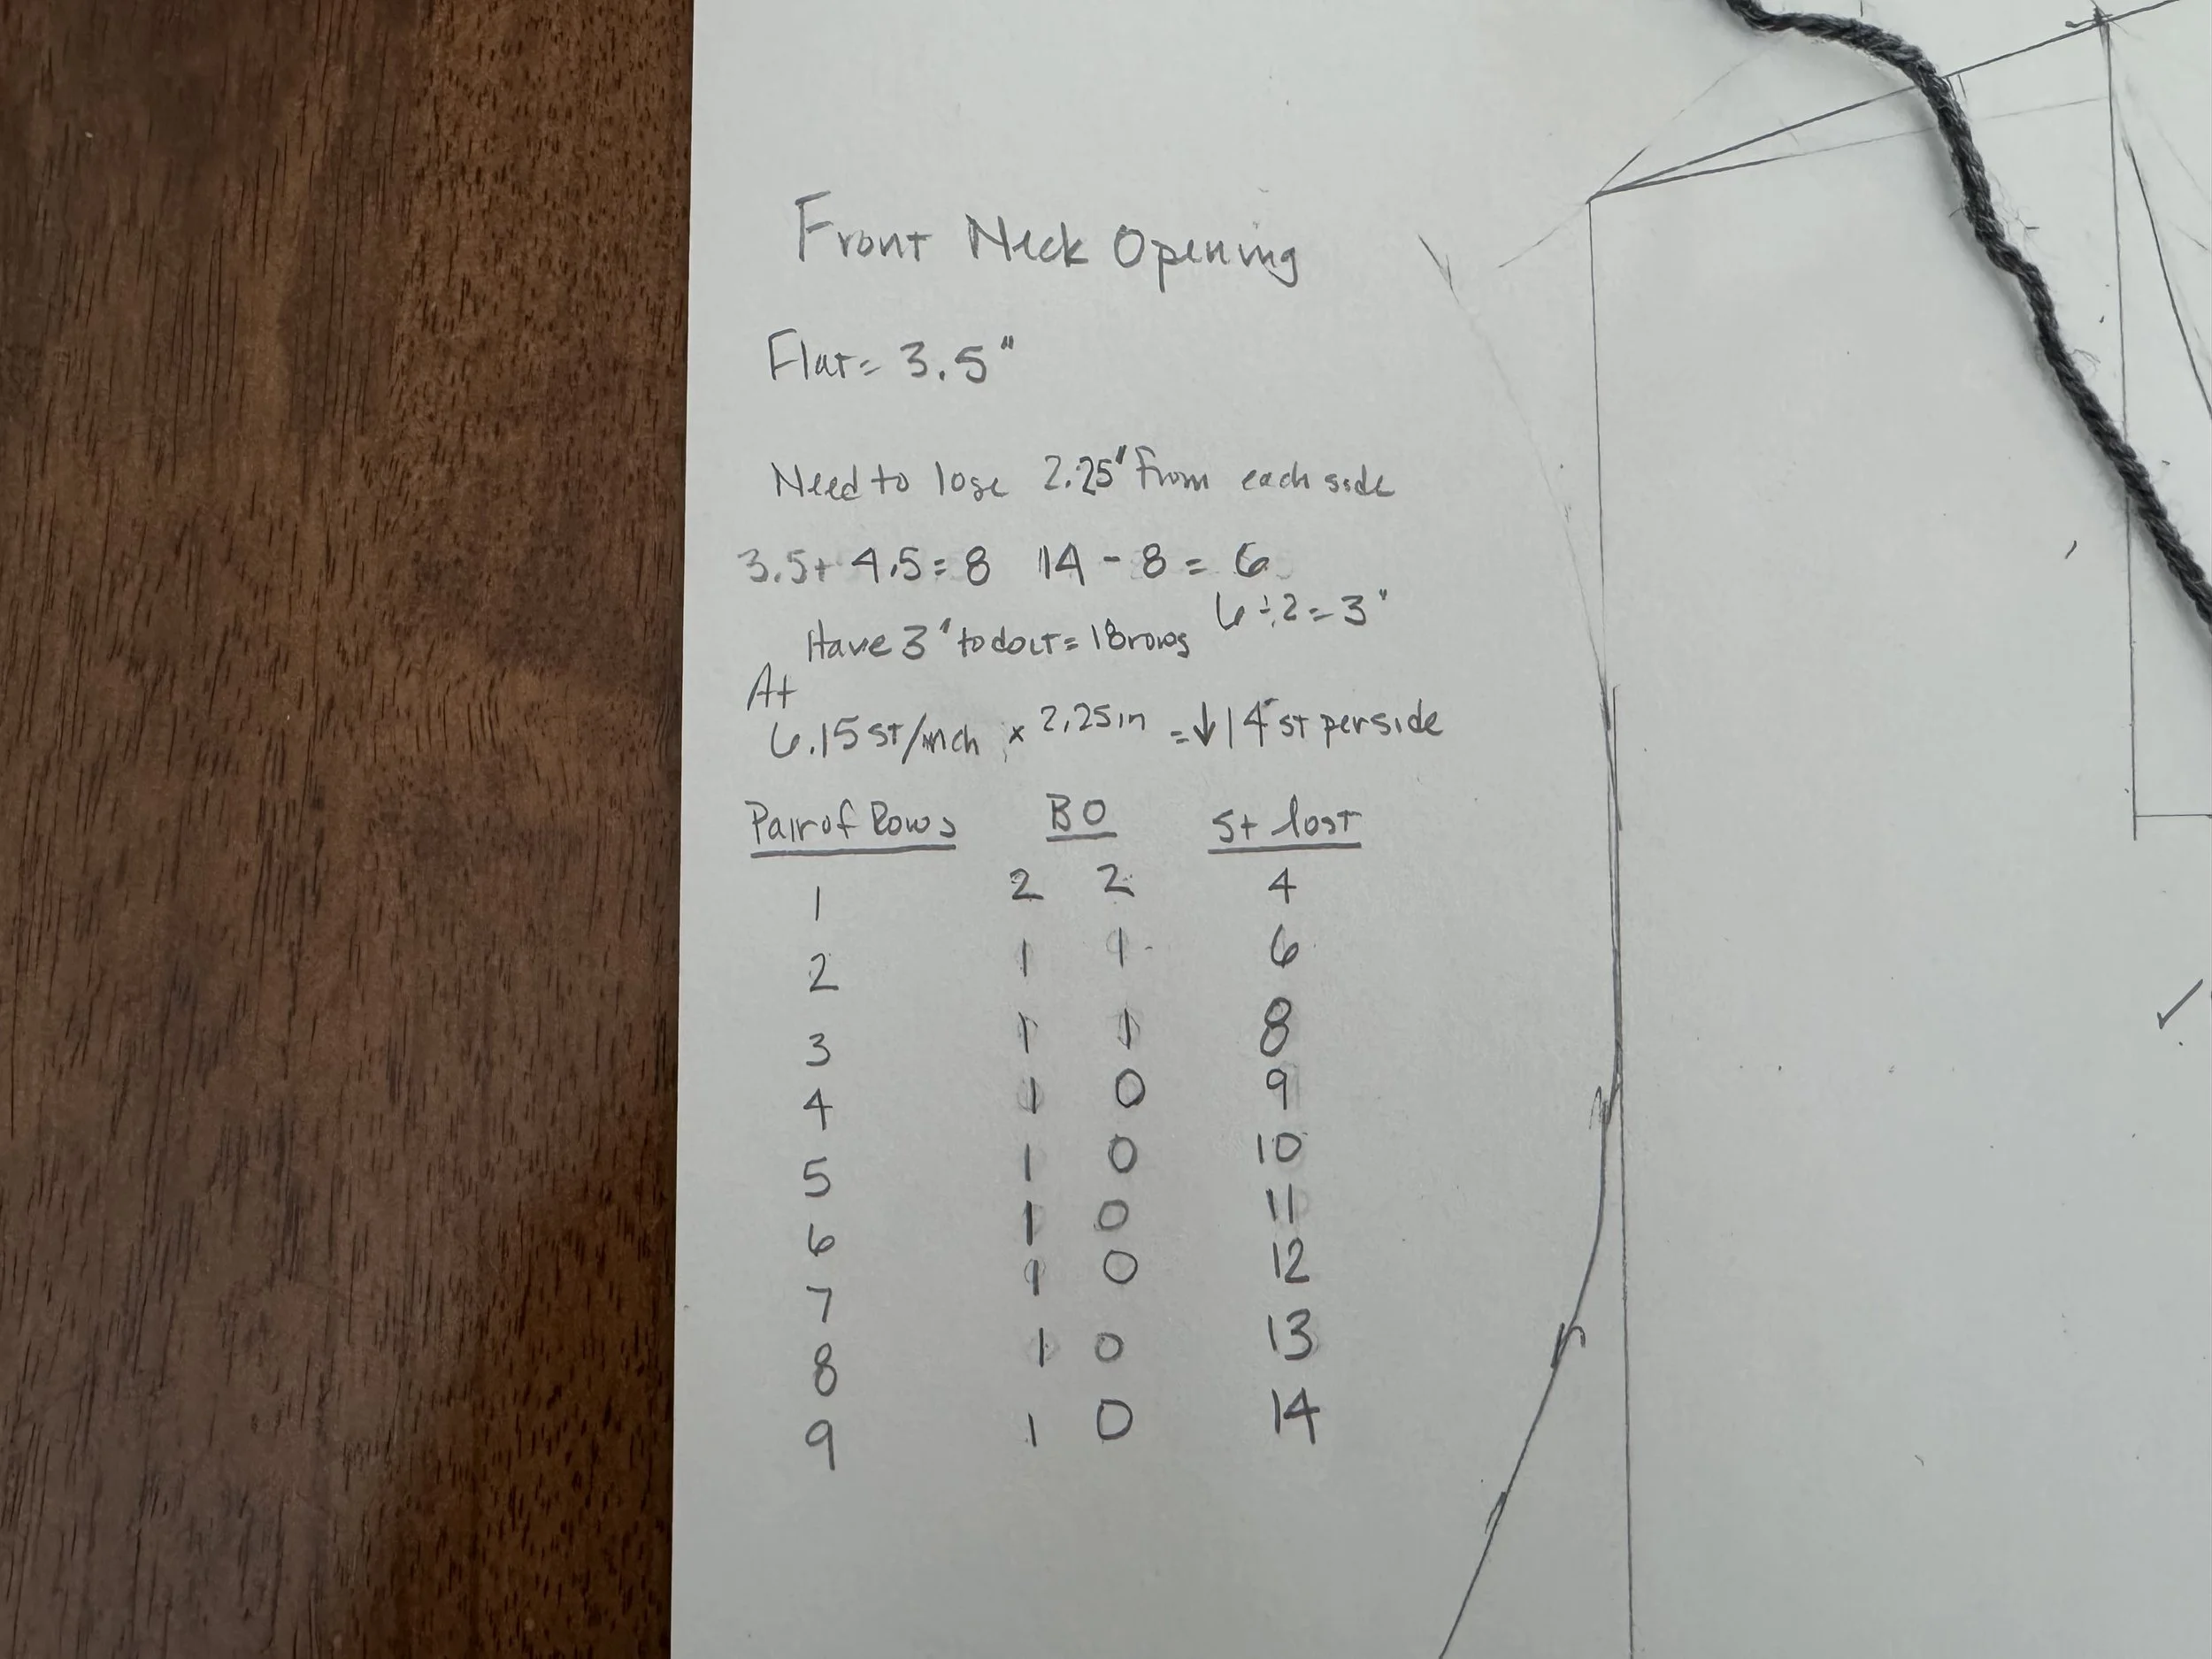 Front Neck Opening
Flat = 3.5"
Need to lose 2.25" From each side
3.5 + 4.5 = 8 14 - 8 = 6
6 ÷ 2 = 3"
Have 3" to do it = 18 rows
At
6.15 st/inch x 2.25 in = ↓ 14 st per side
Pair of Rows BO St lost
1 2 2 4
2 1 1 6
3 1 1 8
4 1 0 9
5 1 0 10
6 1 0 11
7 1 0 12
8 1 0 13
9 1 0 14